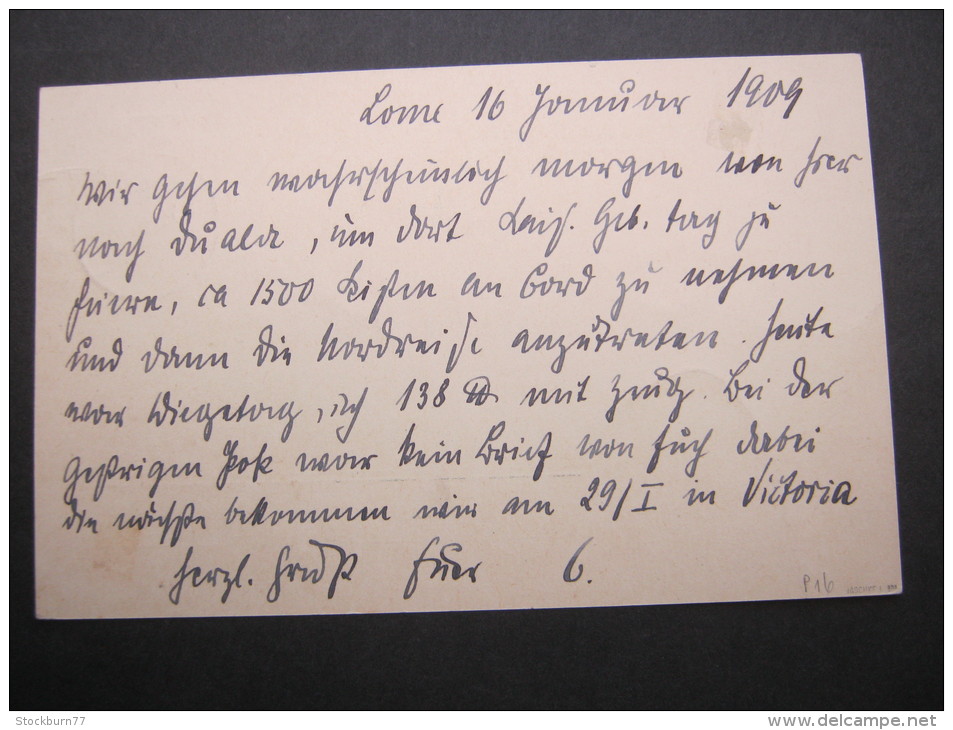 Lome 16 Januar 1909
Wir gehen wahrscheinlich morgen von hier
nach Duala, um dort Kais. Geb. tag zu
feiern, ca 1500 Kisten an Bord zu nehmen
und dann die Nordreise anzutreten. Heute
war Wiegetag, ich 138 ℔ mit Zeug. Bei der
gestrigen Post war kein Brief von Euch dabei
die nächste bekommen wir am 29/I in Victoria
Herzl. Gruß Euer G.
P16
Stockburn77
www.delcampe.net